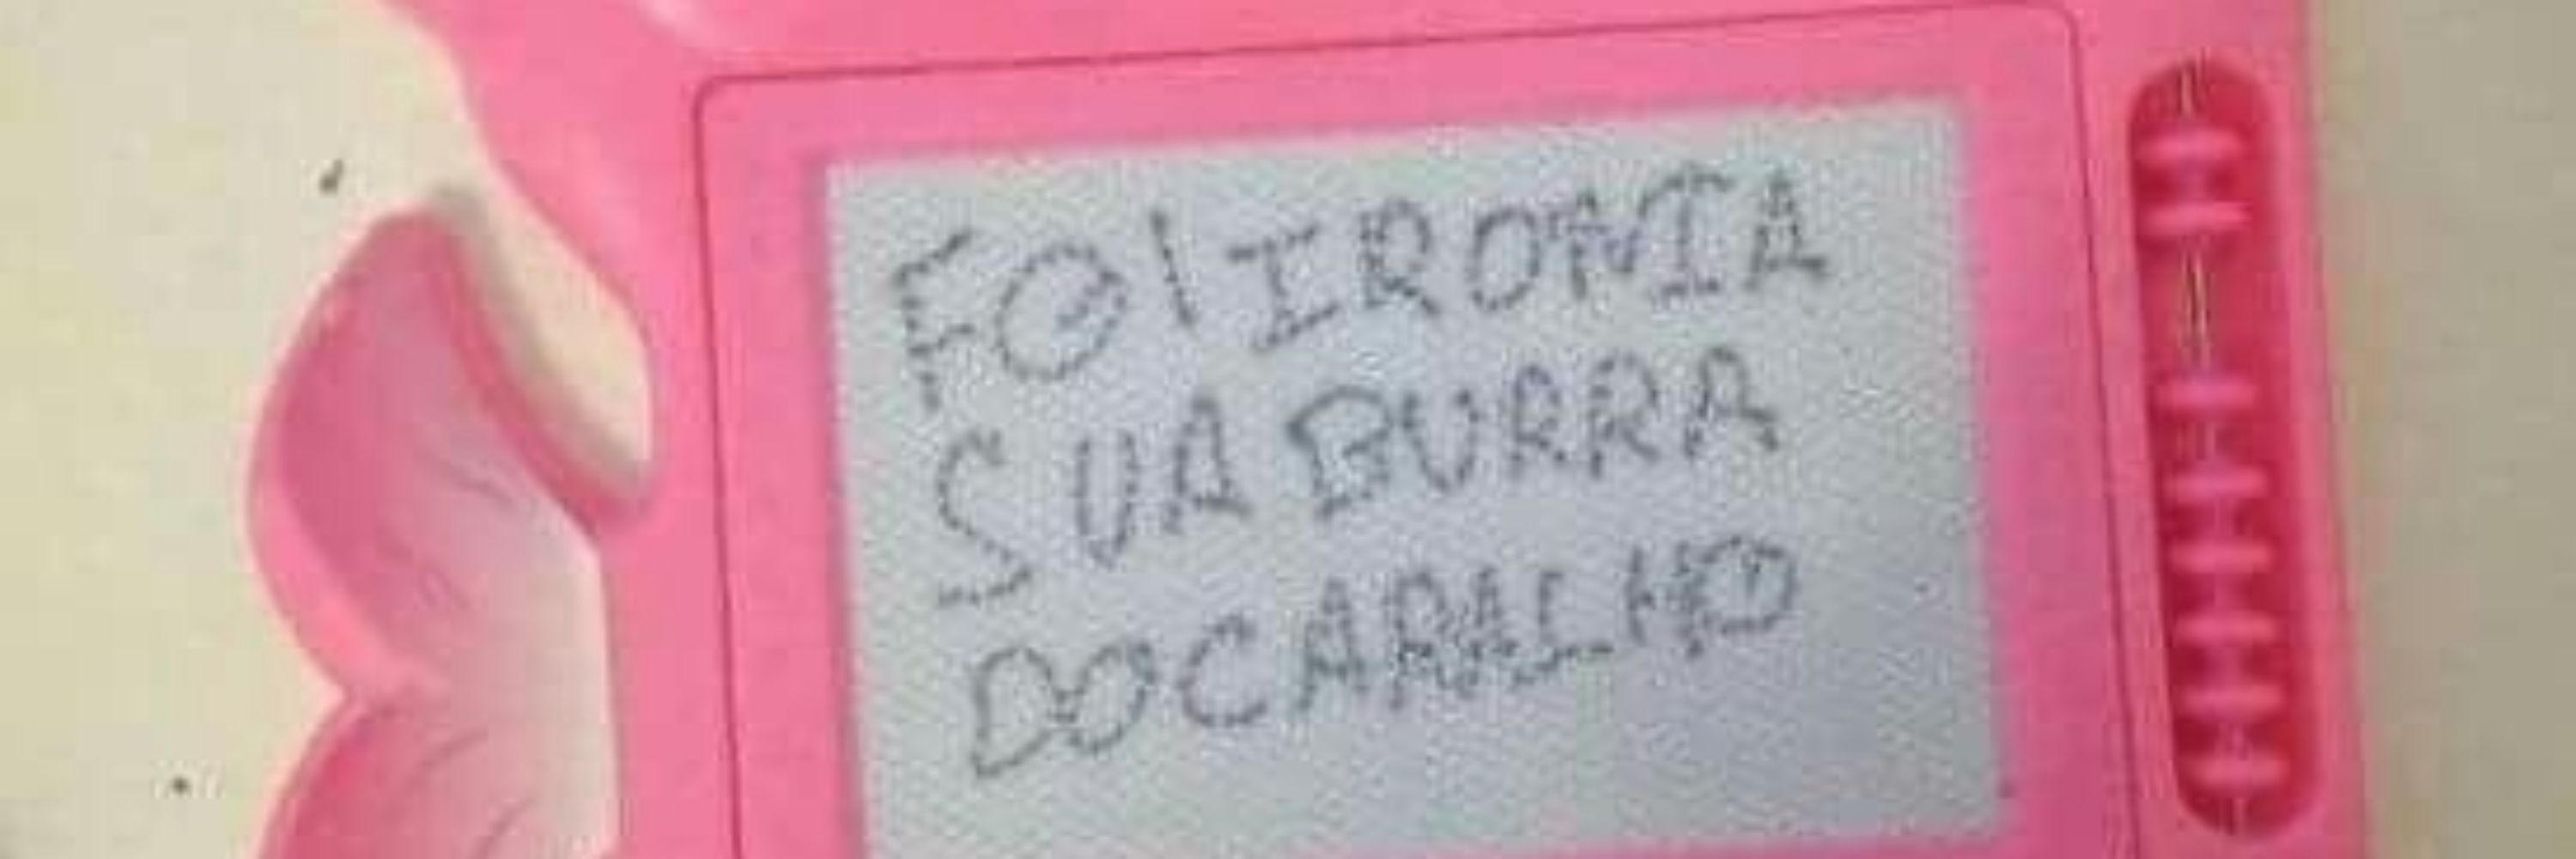 FOI IRONIA
SUA BURRA
DO CARALHO